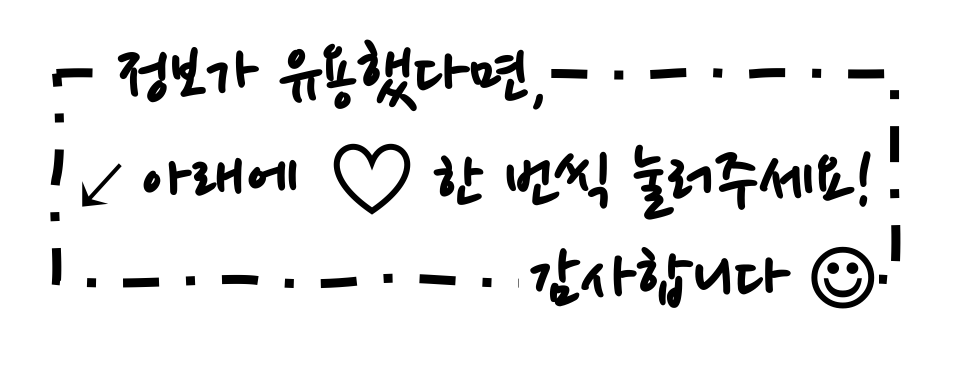 정보가 유용했다면,
↙ 아래에 ♡ 한 번씩 눌러주세요!
감사합니다 ☺